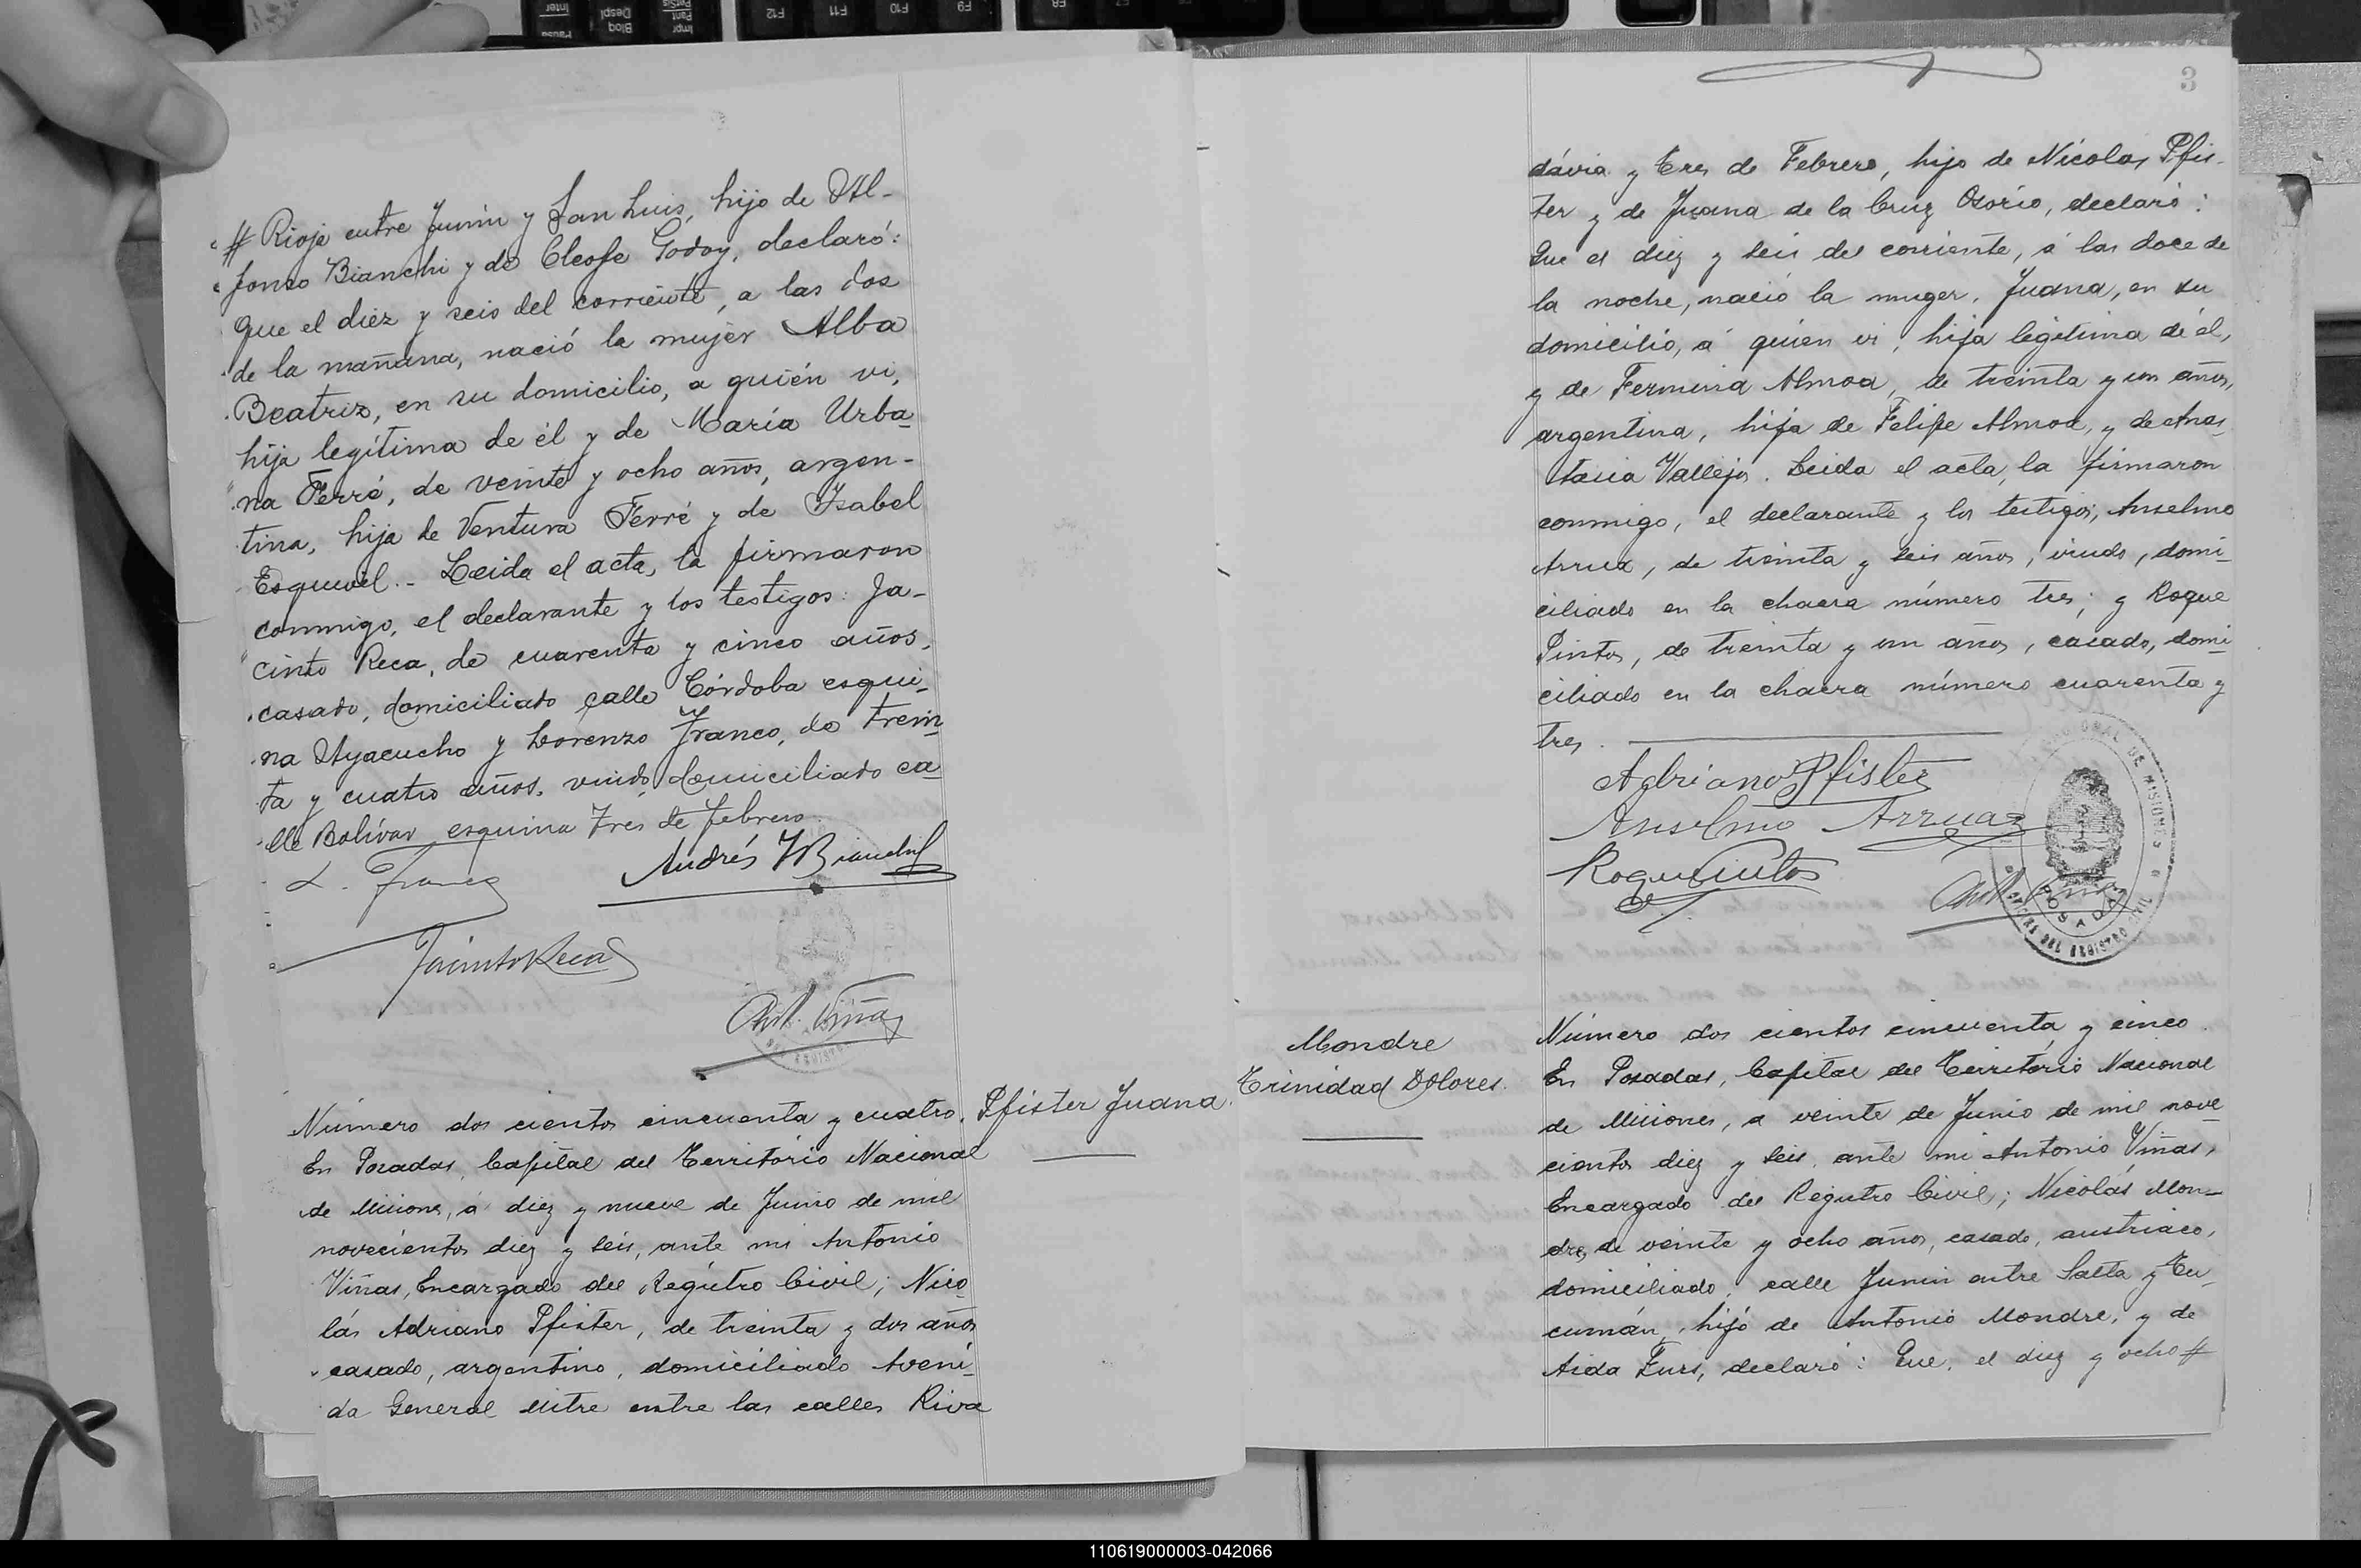 # Rioja entre Junín y San Luis, hijo de Al-
fonso Bianchi y de Cleofe Godoy, declaró:
Que el diez y seis del corriente, a las dos
de la mañana, nació la mujer Alba
Beatriz, en su domicilio, a quién vi,
hija legítima de él y de María Urba
na Ferré, de veinte y ocho años, argen-
tina, hija de Ventura Ferré y de Isabel
Esquivel.- Leida el acta, la firmaron
conmigo, el declarante y los testigos: Ja-
cinto Reca, de cuarenta y cinco años,
casado, domiciliado calle Córdoba esqui-
na Ayacucho y Lorenzo Franco, de trein
ta y cuatro años, viudo, domiciliado ca
lle Bolívar esquina Tres de febrero.
L. Franco
Andrés Bianchi
Jacinto Reca
Ant. Viñas
Número dos cientos cincuenta y cuatro.
Pfister Juana.
En Posadas, Capital del Território Nacional
de Misiones, á diez y nueve de Junio de mil
novecientos diez y seis, ante mi Antonio
Viñas, Encargado del Registro Civil; Nico
lás Adriano Pfister, de treinta y dos años
casado, argentino, domiciliado Aveni-
da General Mitre entre las calles Riva
3
dávia y Tres de Febrero, hijo de Nicolas Pfis-
ter y de Juana de la Cruz Osório, declaró:
Que el diez y seis del corriente, á las doce de
la noche, nació la muger, Juana, en su
domicilio, á quien vi, hija legitima de él,
y de Fermina Almoa, de treinta y un años,
argentina, hija de Felipe Almoa, y de Anas
tasia Vallejos. Leida el acta, la firmaron
conmigo, el declarante y los testigos, Anselmo
Arrua, de treinta y seis años, viudo, domi-
ciliado en la chacra número tres; y Roque
Pintos, de treinta y un años, casado, domi
ciliado en la chacra número cuarenta y
tres.
Adriano Pfister
Anselmo Arruaz
Roque Pintos
Ant. Viñas
OFICINA DEL REGISTRO CIVIL
POSADAS
Mondre
Trinidad Dolores.
Número dos cientos cincuenta y cinco.
En Posadas, Capital del Território Nacional
de Misiones, a veinte de Junio de mil nove
cientos diez y seis, ante mi Antonio Viñas,
Encargado del Registro Civil; Nicolás Mon-
dre, de veinte y ocho años, casado, austriaco,
domiciliado, calle Junin entre Salta y Tu
cumán, hijo de Antonio Mondre, y de
Aida Furs, declaró: Que, el diez y ocho #
Impr
Pant
PetSis
Bloq
Despl
Pausa
Inter
F12
F11
F10
F9
F8
110619000003-042066